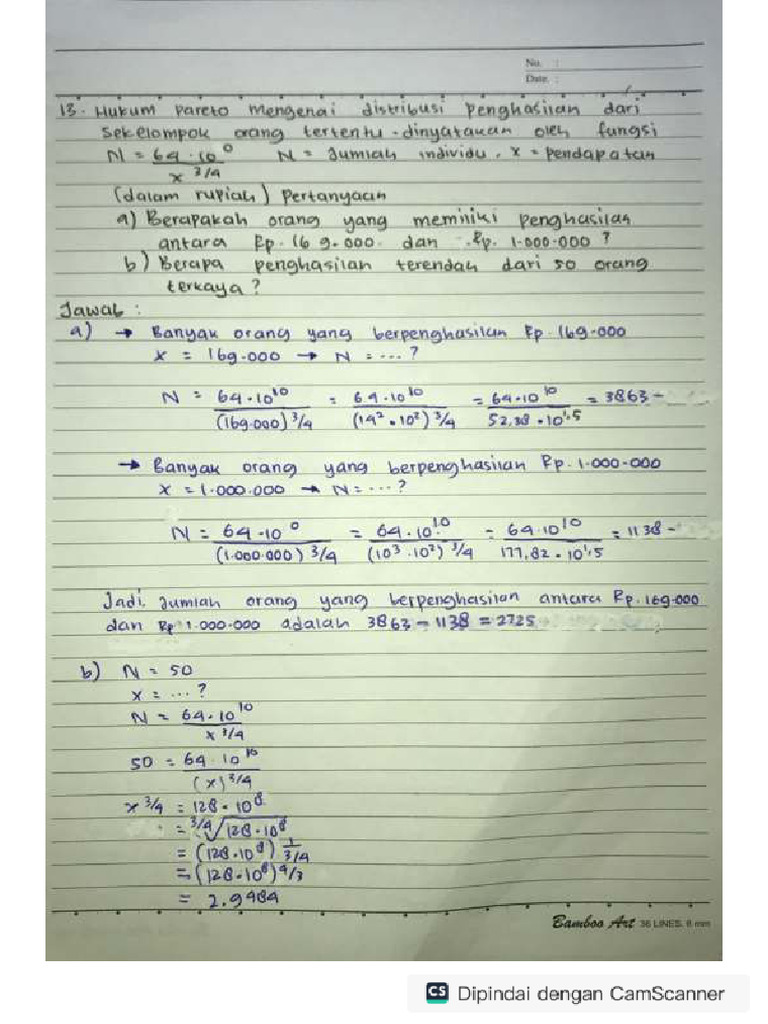 No. :
Date. :
13. Hukum Pareto mengenai distribusi Penghasilan dari
Sekelompok orang tertentu dinyatakan oleh fungsi
N = 64 . 10⁰ / x ³/⁴ N = Jumlah individu, x = pendapatan
(dalam rupiah) Pertanyaan
a) Berapakah orang yang memiliki penghasilan
antara Rp. 16 9.000. dan Rp. 1.000.000 ?
b) Berapa penghasilan terendah dari 50 orang
terkaya ?
Jawab :
a) → Banyak orang yang berpenghasilan Rp. 169.000
x = 169.000 → N = ... ?
N = 64.10¹⁰ / (169.000)³/⁴ = 64.10¹⁰ / (14² . 10²)³/⁴ = 64.10¹⁰ / 52.38 . 10¹.⁵ = 3863 -
→ Banyak orang yang berpenghasilan Rp. 1.000.000
x = 1.000.000 → N = ... ?
N = 64.10⁰ / (1.000.000)³/⁴ = 64.10¹⁰ / (10³ . 10²)³/⁴ = 64.10¹⁰ / 177,82 . 10¹.⁵ = 1138 -
Jadi, Jumlah orang yang berpenghasilan antara Rp. 169.000
dan Rp 1.000.000 adalah 3863 - 1138 = 2725
b) N = 50
x = ... ?
N = 64.10¹⁰ / x ³/⁴
50 = 64.10¹⁰ / (x)³/⁴
x ³/⁴ = 128 . 10⁸
= ³/⁴√128.10⁸
= (128.10⁸) 1/3/4
= (128.10⁸)⁴/³
= 2.9984
Bamboo Art 36 LINES, 8 mm
CS Dipindai dengan CamScanner